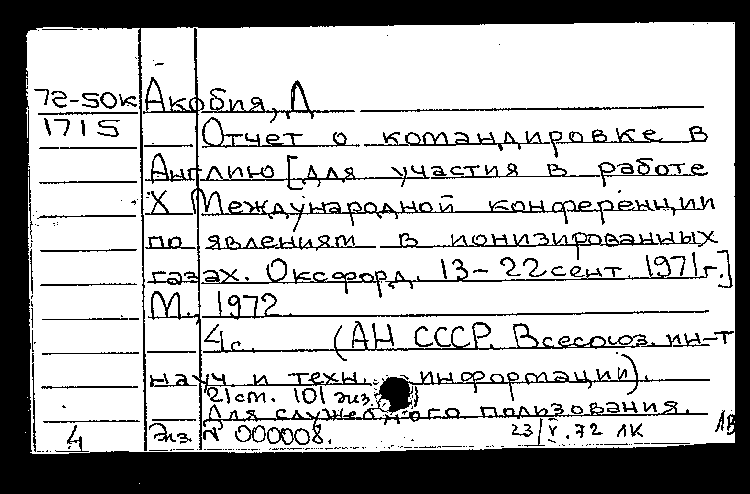 72-50к Акобия, Л
1715 Отчет о командировке в
Англию [для участия в работе
X Международной конференции
по явлениям в ионизированных
газах. Оксфорд. 13-22 сент 1971г.]
М., 1972.
4с. (АН СССР. Всесоюз. ин-т
науч. и техн. информации).
21 ст. 101 экз.
Для служебного пользования.
4 Экз. № 000008. 23/V.72 ЛК ЛВ